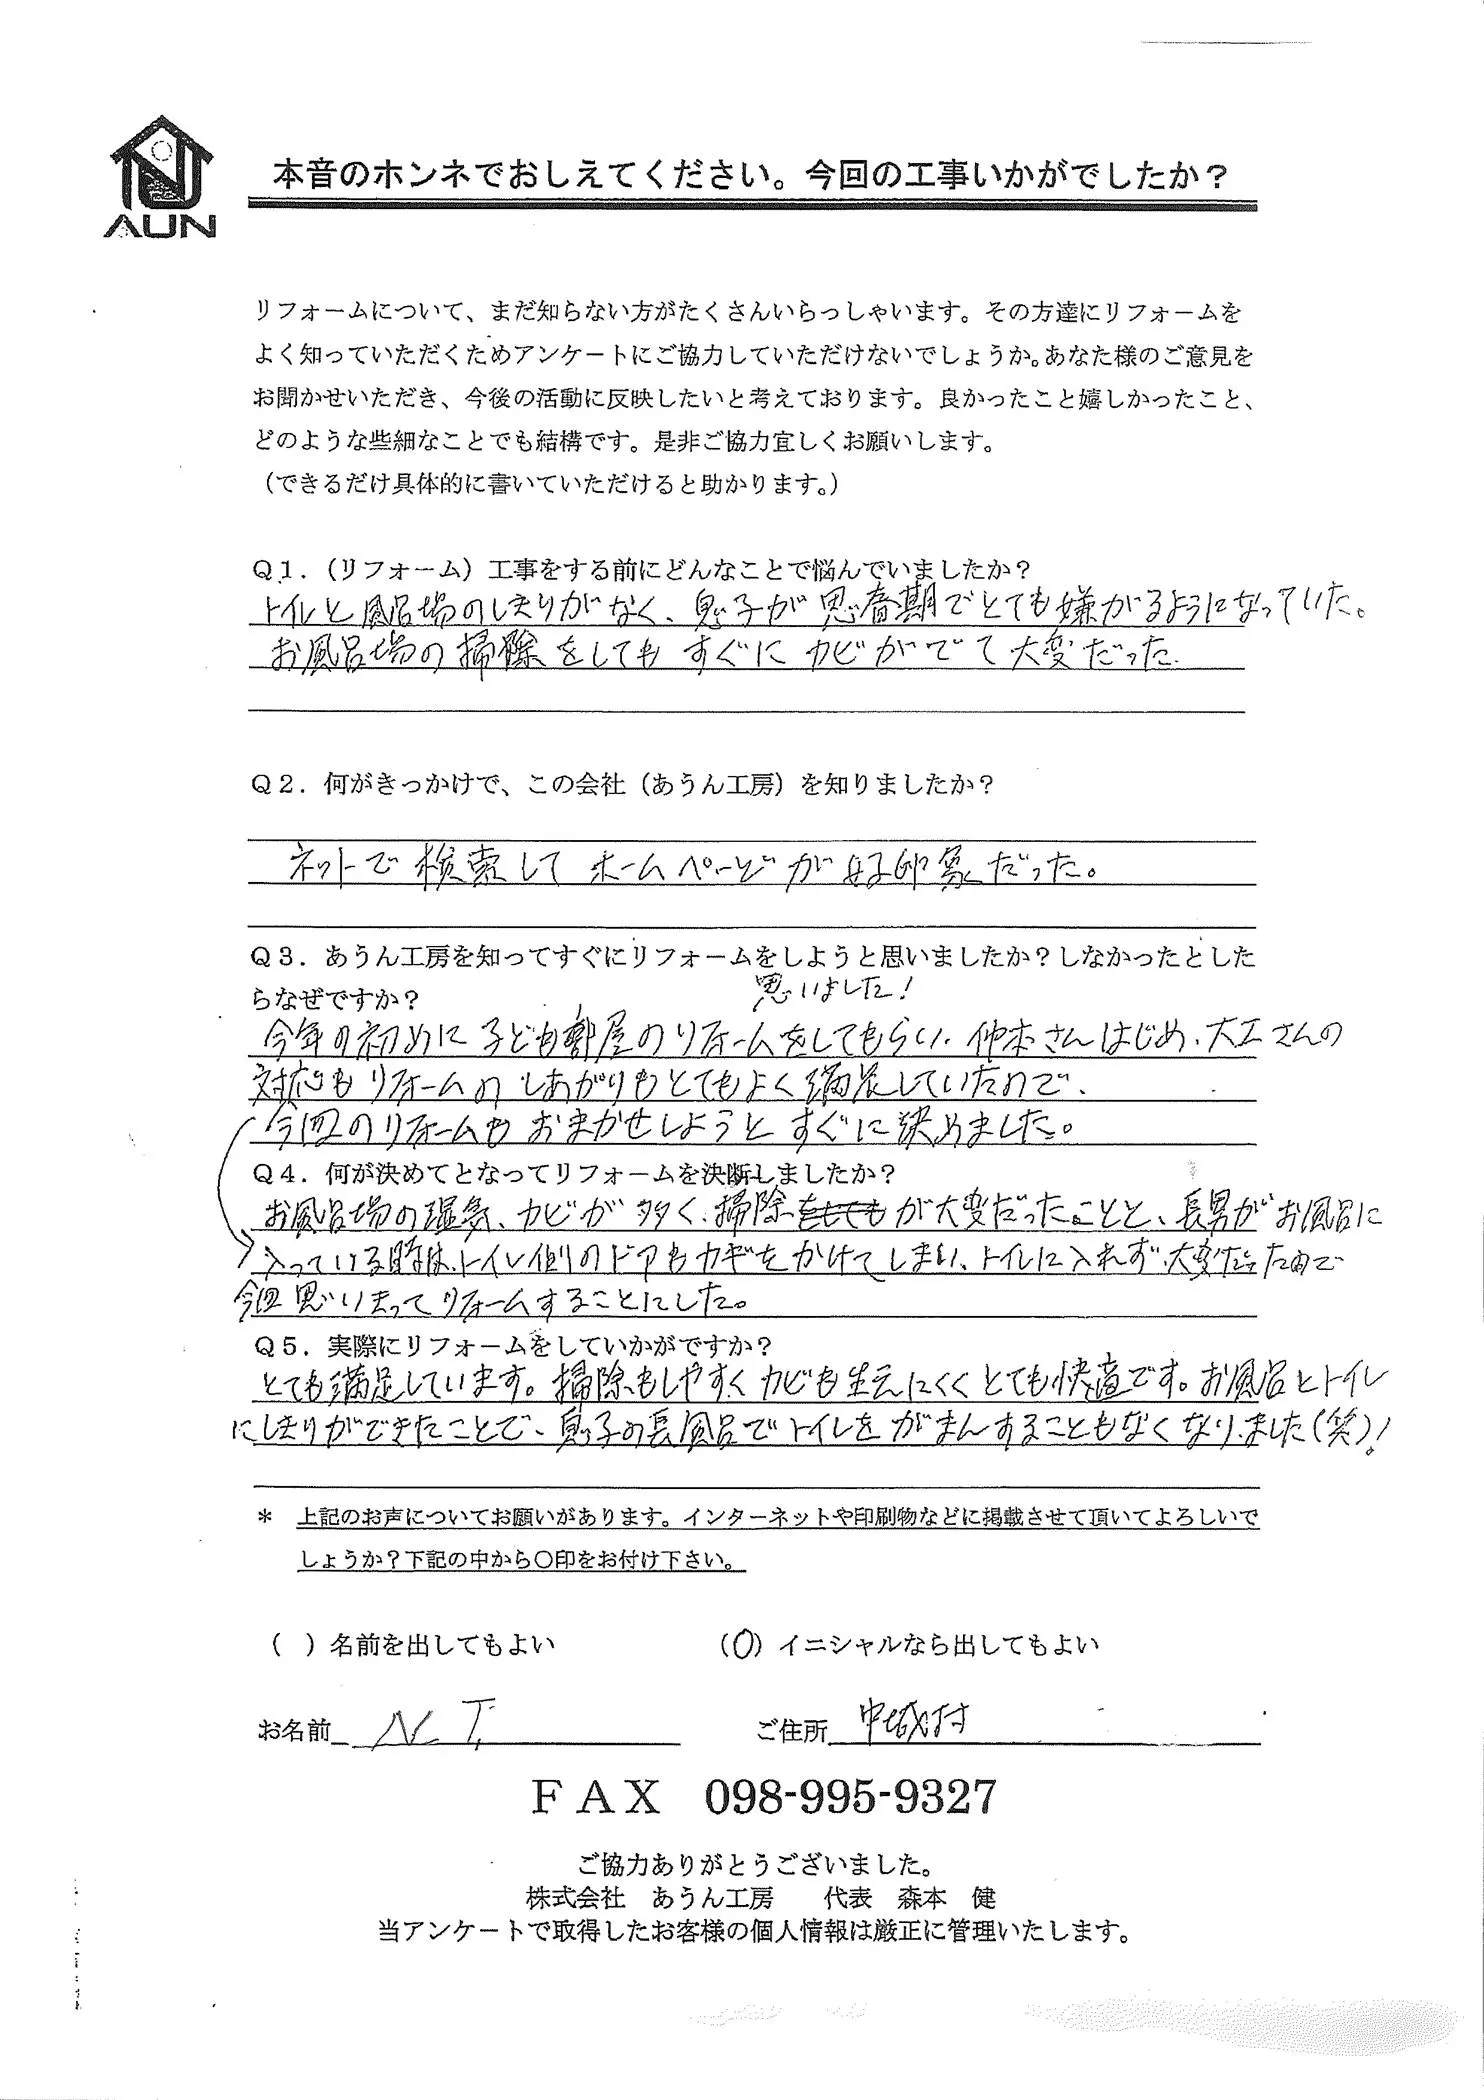 AUN
本音のホンネでおしえてください。今回の工事いかがでしたか？
リフォームについて、まだ知らない方がたくさんいらっしゃいます。その方達にリフォームを
よく知っていただくためアンケートにご協力していただけないでしょうか。あなた様のご意見を
お聞かせいただき、今後の活動に反映したいと考えております。良かったこと嬉しかったこと、
どのような些細なことでも結構です。是非ご協力宜しくお願いします。
（できるだけ具体的に書いていただけると助かります。）
Ｑ１．（リフォーム）工事をする前にどんなことで悩んでいましたか？
トイレと風呂場のしきりがなく、息子が思春期でとても嫌がるようになっていた。
お風呂場の掃除をしてもすぐにカビがでて大変だった。
Ｑ２．何がきっかけで、この会社（あうん工房）を知りましたか？
ネットで検索してホームページが好印象だった。
Ｑ３．あうん工房を知ってすぐにリフォームをしようと思いましたか？しなかったとした
らなぜですか？
思いました！
今年の初めに子ども部屋のリフォームをしてもらい、仲本さんはじめ、大工さんの
対応もリフォームのしあがりもとてもよく満足していたので、
今回のリフォームもおまかせしようとすぐに決めました。
Ｑ４．何が決めてとなってリフォームを決断しましたか？
お風呂場の湿気、カビが多く、掃除をもてもが大変だったことと、長男がお風呂に
入っている時は、トイレ側のドアもカギをかけてしまい、トイレに入れず、大変だったので
今回思いきってリフォームすることにした。
Ｑ５．実際にリフォームをしていかがですか？
とても満足しています。掃除もしやすくカビも生えにくくとても快適です。お風呂とトイレ
にしきりができたことで、息子の長風呂でトイレをがまんすることもなくなりました(笑)！
＊ 上記のお声についてお願いがあります。インターネットや印刷物などに掲載させて頂いてよろしいで
しょうか？下記の中から〇印をお付け下さい。
（ ）名前を出してもよい （〇）イニシャルなら出してもよい
お名前 N.T. ご住所 中城村
ＦＡＸ 098-995-9327
ご協力ありがとうございました。
株式会社 あうん工房 代表 森本 健
当アンケートで取得したお客様の個人情報は厳正に管理いたします。